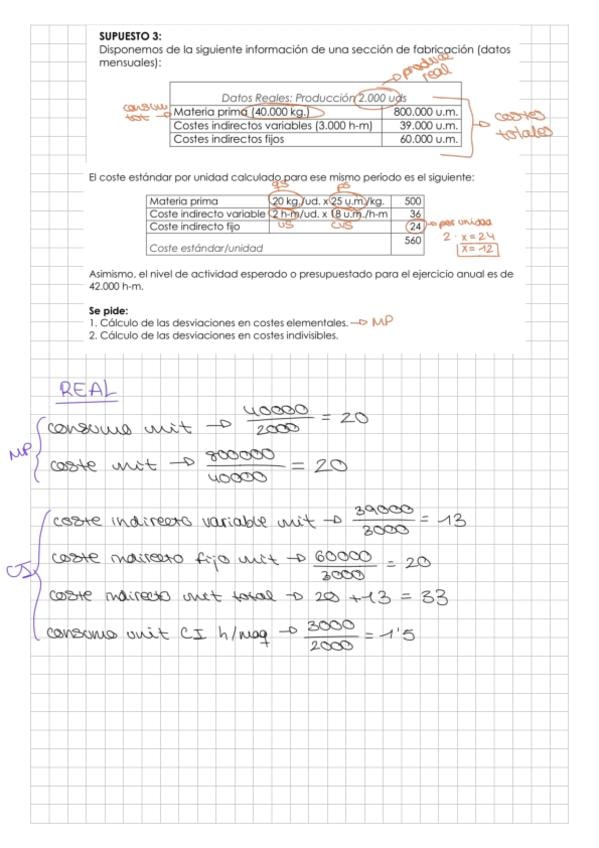 SUPUESTO 3:
Disponemos de la siguiente información de una sección de fabricación (datos
mensuales):
produce
real
Datos Reales: Producción 2.000 uds
consumo
tot
Materia prima (40.000 kg.) 800.000 u.m.
Costes indirectos variables (3.000 h-m) 39.000 u.m.
Costes indirectos fijos 60.000 u.m.
costes
totales
El coste estándar por unidad calculado para ese mismo periodo es el siguiente:
qs ps
Materia prima 20 kg./ud. x 25 u.m/kg. 500
Coste indirecto variable 2 h-m/ud. x 18 u.m./h-m 36
Coste indirecto fijo us cvs 24 → por unidad
2 · x = 24
x = 12
560
Coste estándar/unidad
Asimismo, el nivel de actividad esperado o presupuestado para el ejercicio anual es de
42.000 h-m.
Se pide:
1. Cálculo de las desviaciones en costes elementales. → MP
2. Cálculo de las desviaciones en costes indivisibles.
REAL
MP
consumo unit → 40000/2000 = 20
coste unit → 800000/40000 = 20
CI
coste indirecto variable unit → 39000/3000 = 13
coste indirecto fijo unit → 60000/3000 = 20
coste indirecto unit total → 20 + 13 = 33
consumo unit CI h/maq → 3000/2000 = 1'5